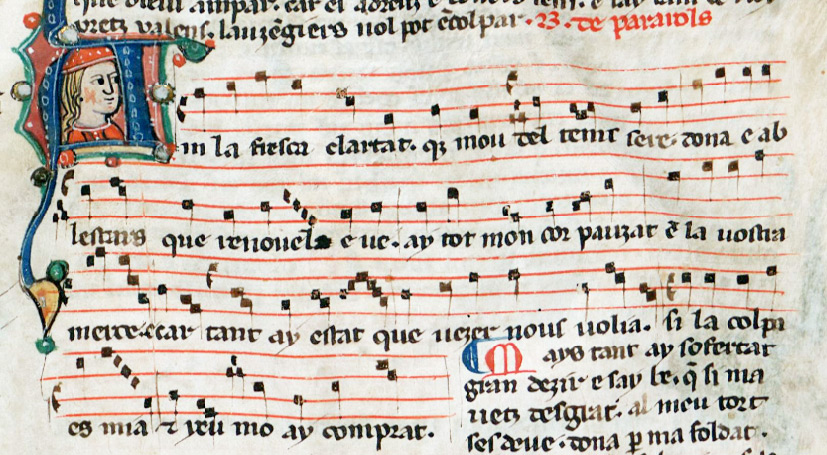 que ai estat e
uretz valens. lauzēgiers nol pot ēcolpar. B. de paraiols
m la fresca clartat. q̄ mou del temr sere. dona e ab
lestars que renouela e ue. ay tot mon cor pauzat ē la uostra
merce. ear tant ay estat que uezer nous uolia. si la colpa
es mia z yeu mo ay comprat.
Mays tant ay sofertat
gran dezir e say be. q̄ si ma
uetz desgrat. al meu tort
ses deue. dona p̄ ma foldat.